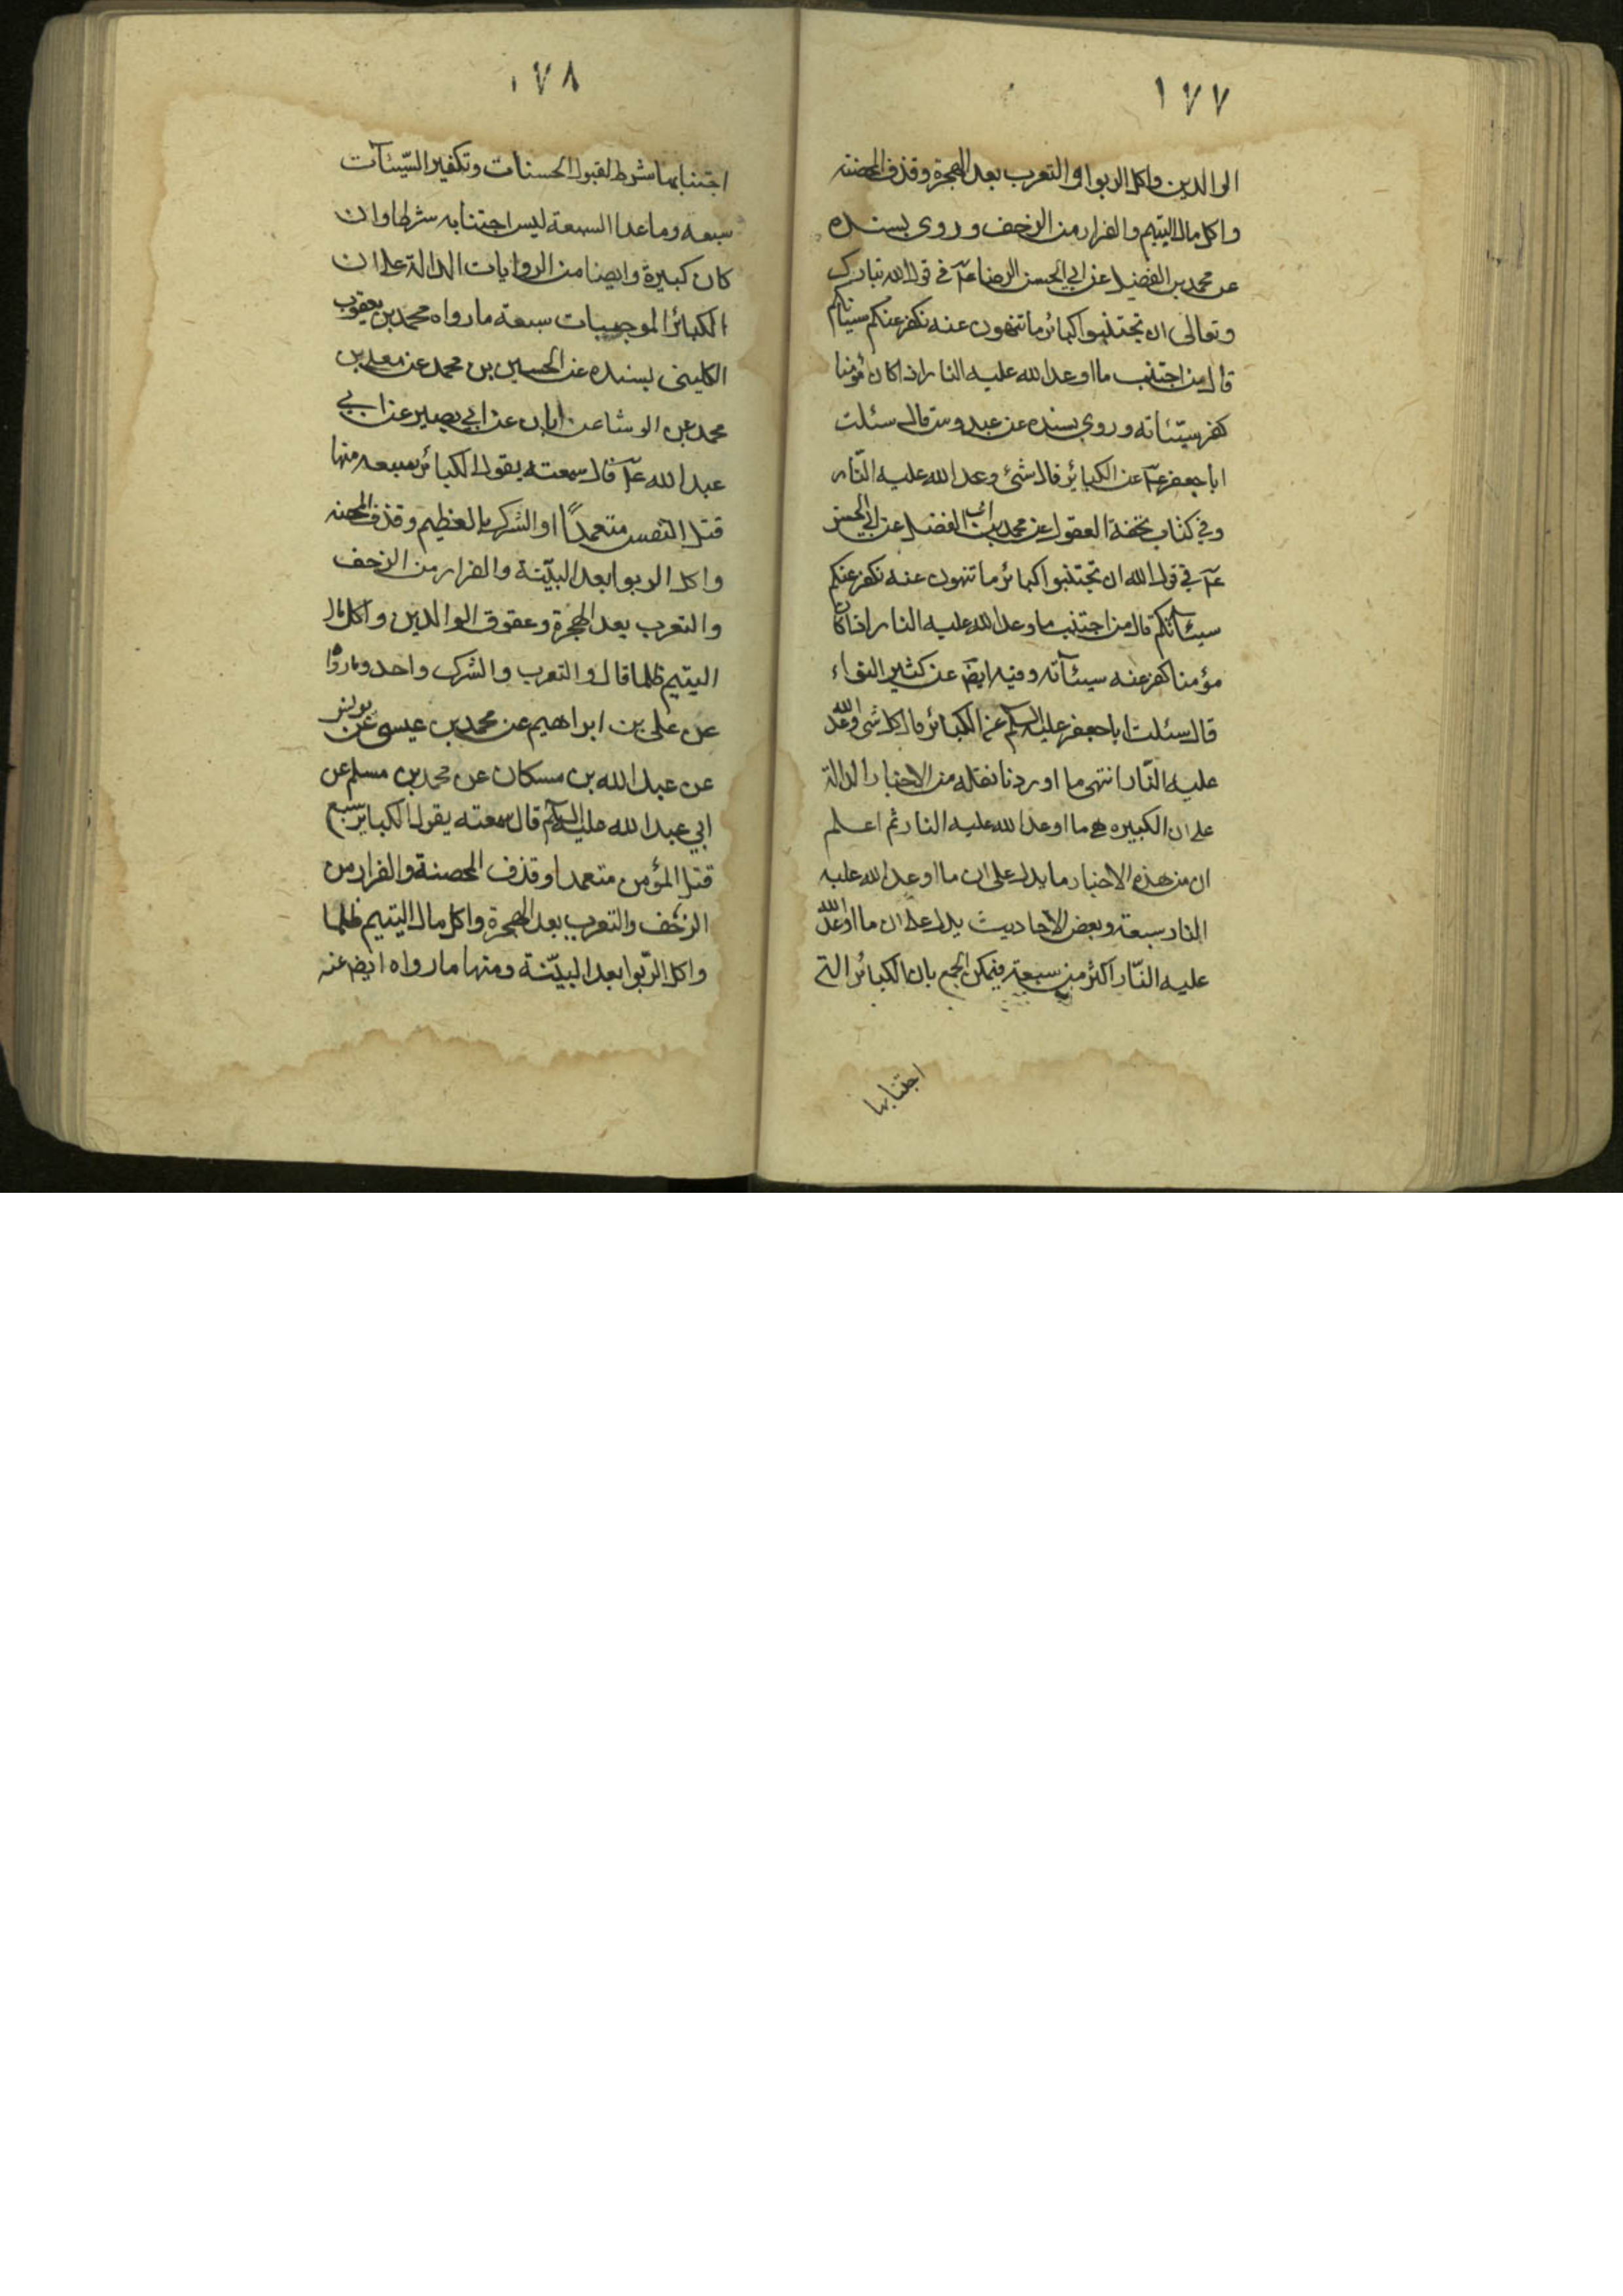 ١٧٧
الوالدين واكل الربوا والتعرب بعد الهجرة وقذف المحصنه
واكل مال اليتيم والفرار من الزحف وروى بسنده
عن محمد بن الفضيل عن ابي الحسن الرضا عۤ في قول الله تبارك
وتعالى ان تجتنبوا كبائر ما تنهون عنه نكفر عنكم سيئاتكم
قال من اجتنب ما اوعد الله عليه النار اذا كان مؤمنا
كفر سيئاته وروى بسنده عن قال سئلت
ابا جعفر عۤ عن الكبائر قال شئ وعد الله عليه النّار
وفي كتاب تحفة العقول عن محمد بن الفضل عن ابي الحسن
عۤ في قول الله ان تجتنبوا كبائر ما تنهون عنه نكفر عنكم
سيئاتكم قال من اجتنب ما وعد الله عليه النار اذا كان
مؤمنا كفر عنه سيئآته وفيه ايضۤ عن كثير النواء
قال سئلت ابا جعفر عليه السلام عن الكبائر قال كل شئ وعد الله
عليه النّار انتهى ما اوردنا نقله من الاخبار الدالة
على ان الكبيره هي ما اوعد الله عليه النار ثم اعلم
ان من هذه الاخبار ما يدل على ان ما اوعد الله عليه
النار سبعة وبعض الاحاديث يدل على ان ما اوعد الله
عليه النّار اكثر من سبعة فيمكن الجمع بان الكبائر التي
اجتنابها
١٧٨
اجتنابها شرط لقبول الحسنات وتكفير السّيئآت
سبعه وما عدا السبعة ليس اجتنابه شرطا وان
كان كبيرة وايضا من الروايات الدالة على ان
الكبائر الموجبات سبعة ما رواه محمد بن يعقوب
الكليني بسنده عن الحسين بن محمد عن معلى بن
محمد عن الوشا عن ابان عن ابي بصير عن ابي
عبد الله عۤ قال سمعته يقول الكبائر سبعه منها
قتل النفس متعمداً او الشرك بالعظيم وقذف المحصنه
واكل الربوا بعد البيّنة والفرار من الزحف
والتعرب بعد الهجرة وعقوق الوالدين واكل مال
اليتيم ظلما قال والتعرب والشرك واحد وما رواه
عن على بن ابراهيم عن محمد بن عيسى عن يونس
عن عبد الله بن مسكان عن محمد بن مسلم عن
ابي عبد الله عليه السلام قال سمعته يقول الكباير سبع
قتل المؤمن متعمدا وقذف المحصنة والفرار من
الزحف والتعرب بعد الهجرة واكل مال اليتيم ظلما
واكل الرّبوا بعد البيّنة ومنها ما رواه ايضۤ عنه